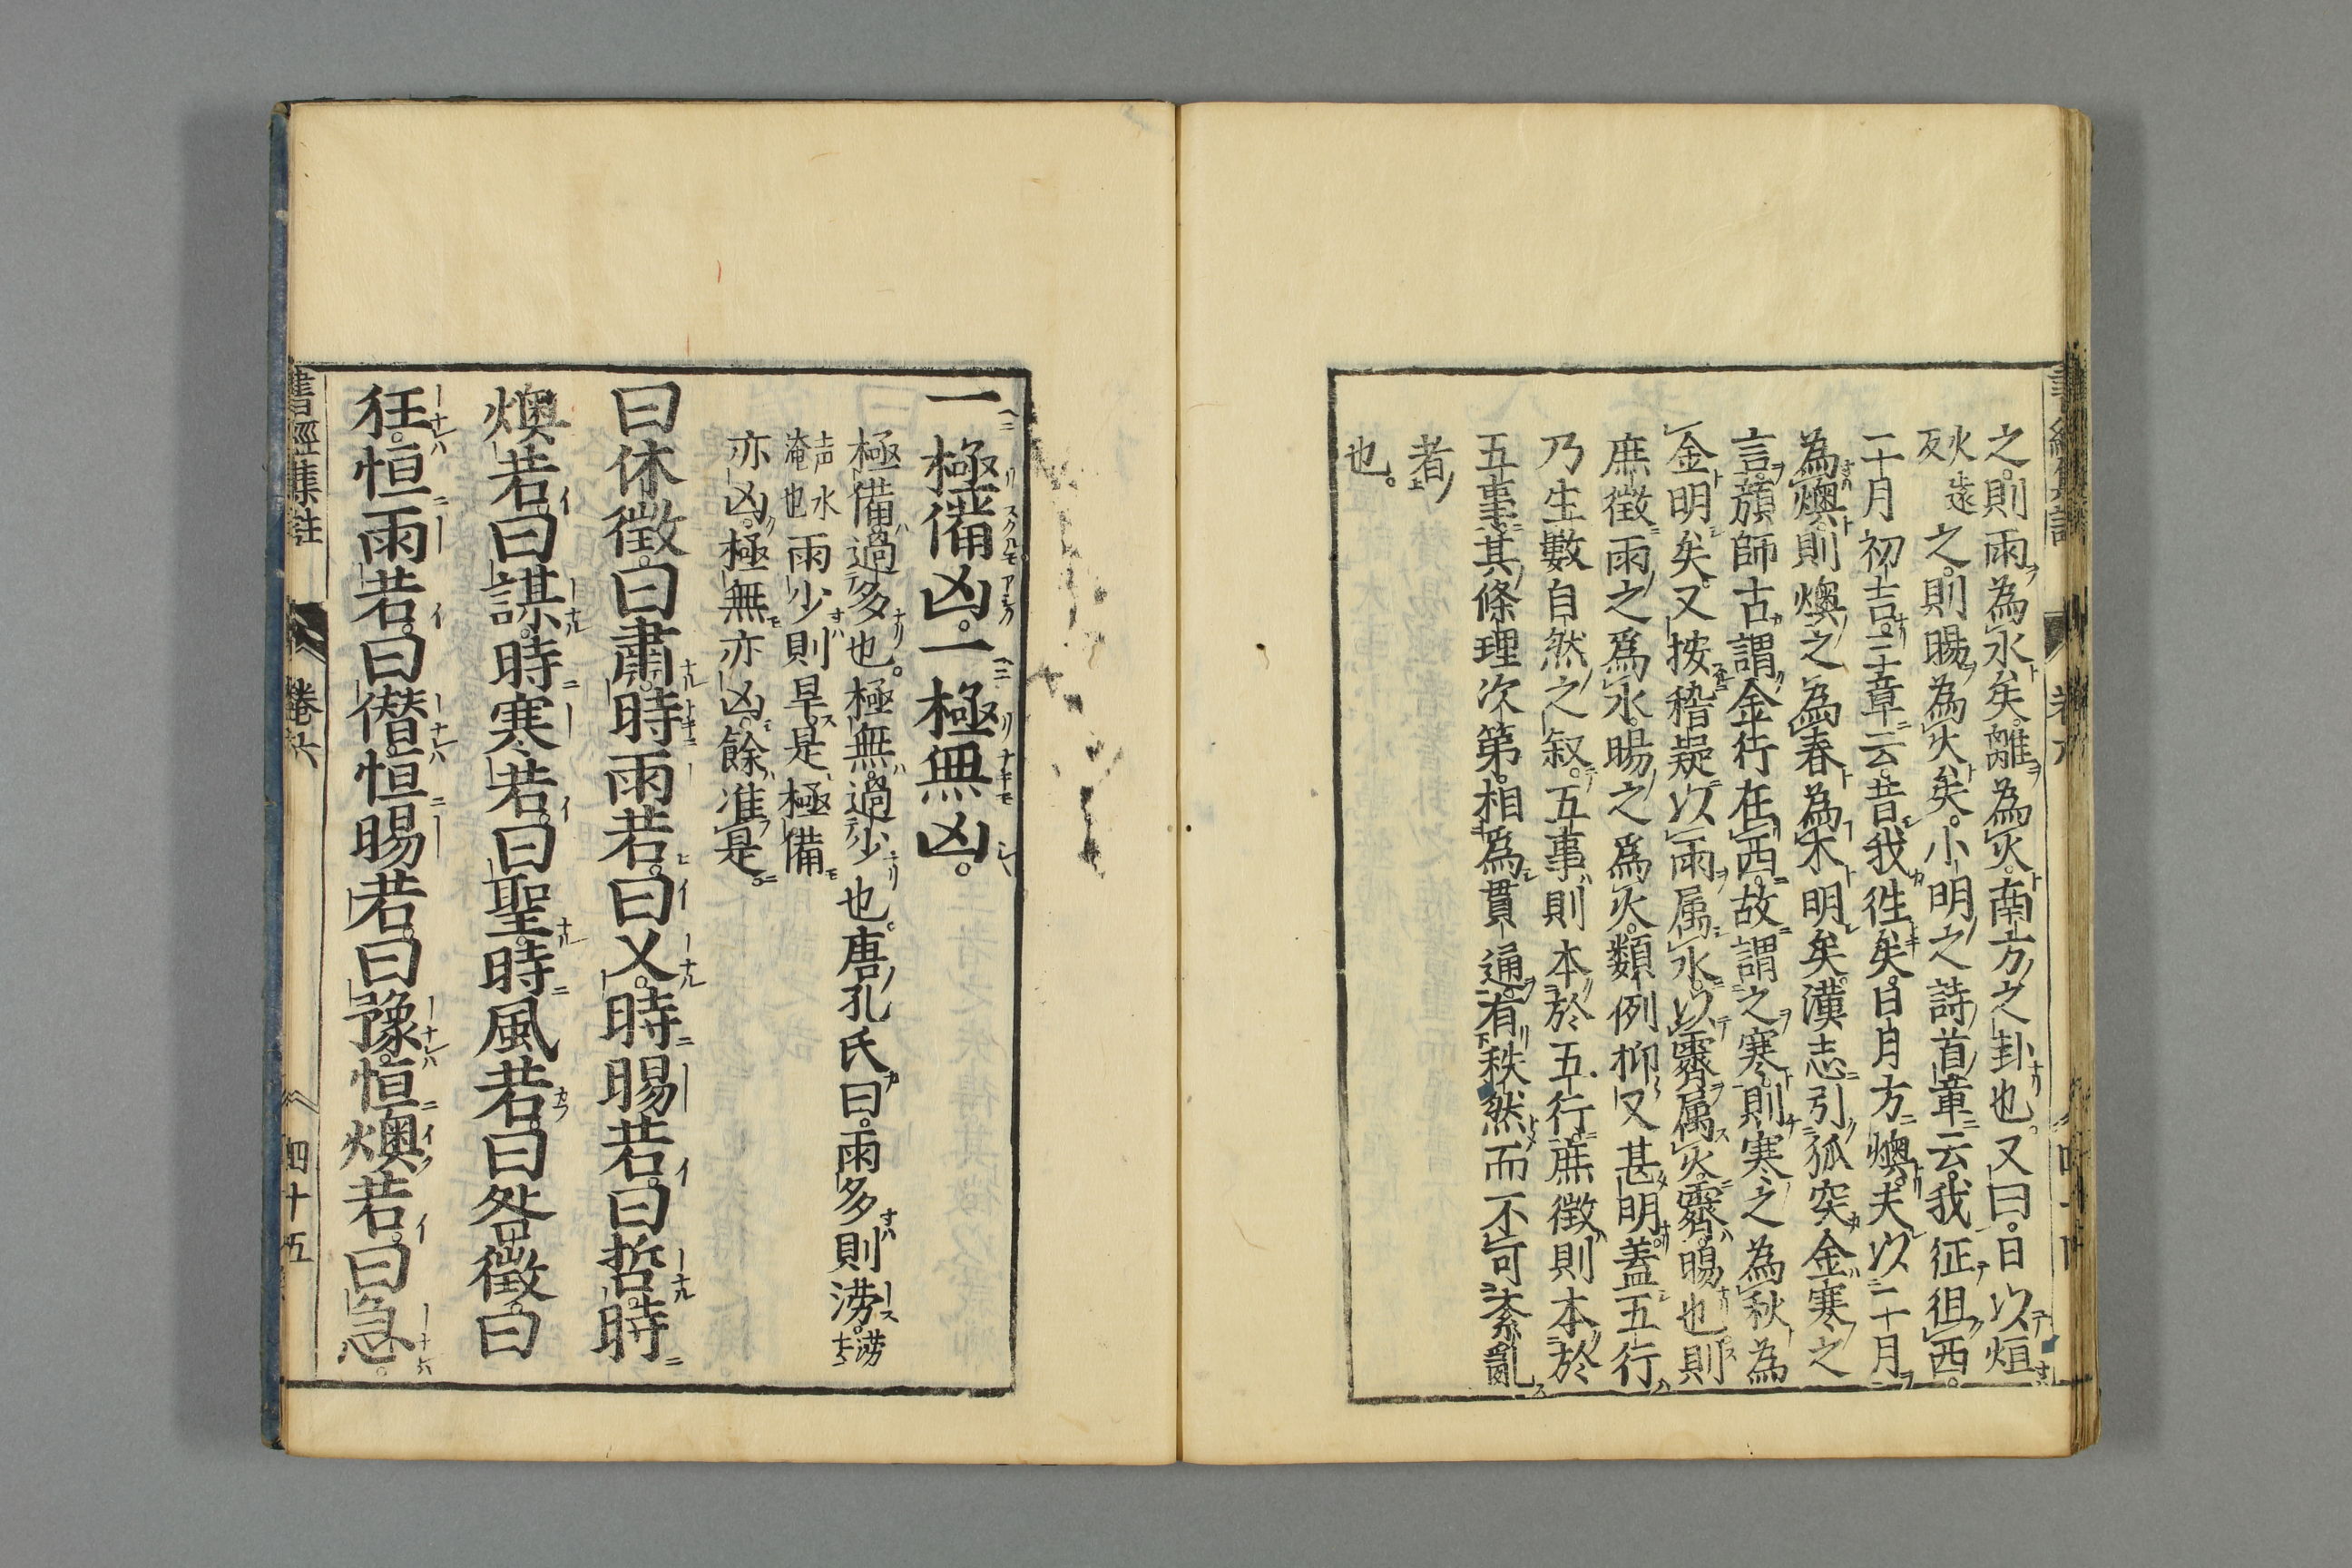 之。則雨為水矣。離為火。南方之卦也。又曰。日以烜
火遠反之。則暘為火矣。小明之詩首章云。我征徂西。
二月初吉。三章云。昔我徃矣。日月方燠。夫以二月
為燠。則燠之為春為木明矣。漢志引狐突金寒之
言。顔師古謂。金行在西。故謂之寒。則寒之為秋為
金明矣。又按稽疑以雨属水。以霽属火。霽。暘也。則
庶徵雨之為水。暘之為火。類例抑又甚明。蓋五行
乃生數自然之叙。五事則本於五行。庶徵則本於
五事。其條理次第。相為貫通。有秩然而不可紊亂
者
也。
一極備凶。一極無凶。
極備。過多也。極無。過少也。唐孔氏曰。雨多則澇。澇
声水淹也雨少則旱。是極備
亦凶。極無亦凶。餘准是。
曰休徵。曰肅。時雨若。曰乂。時暘若。曰哲。時
燠若。曰謀。時寒若。曰聖。時風若。曰咎徵。曰
狂。恒雨若。曰僭。恒暘若。曰豫。恒燠若。曰急。
書經集註 卷六 四十五